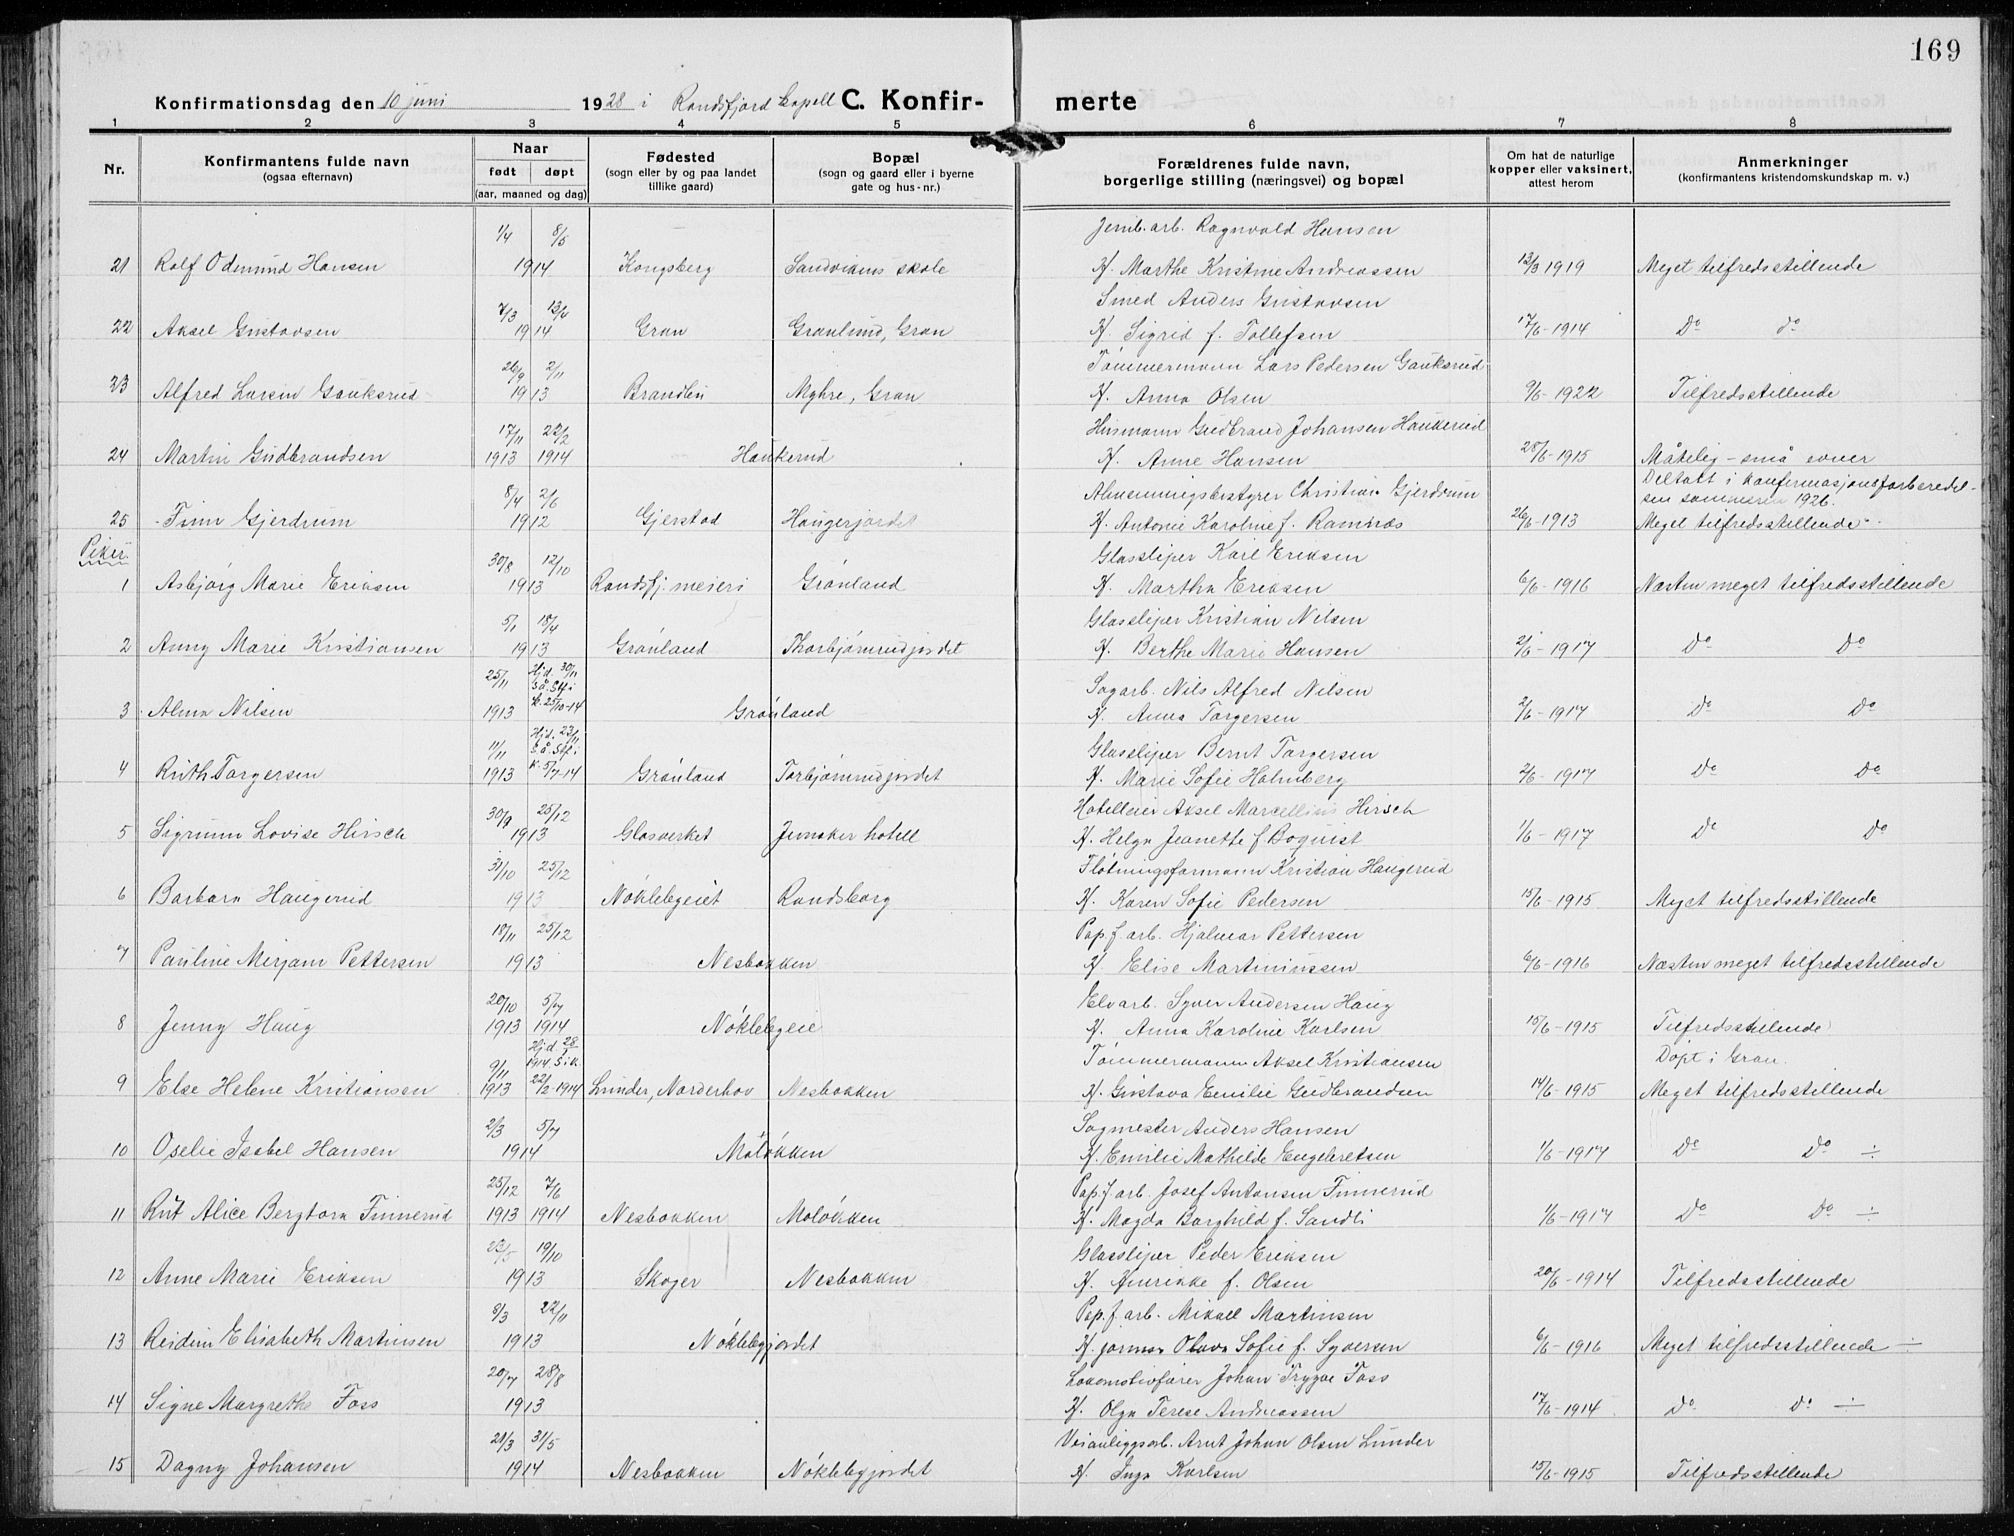 169
Konfirmationsdag den 10 juni 1928 i Randsfjord Capell C. Konfir- merte
1 2 3 4 5 6 7 8
Nr.
Konfirmantens fulde navn
(ogsaa efternavn)
Naar
født døpt
(aar, maaned og dag)
Fødested
(sogn eller by og paa landet
tillike gaard)
Bopæl
(sogn og gaard eller i byerne
gate og hus-nr.)
Forældrenes fulde navn,
borgerlige stilling (næringsvei) og bopæl
Om hat de naturlige
kopper eller vaksinert,
attest herom
Anmerkninger
(konfirmantens kristendomskundskap m. v.)
1/4 8/5 Jernb.arb. Ragnvald Hansen
21 Rolf Odmund Hansen 1914 Kongsberg Sandvikens skole H. Marthe Kristine Andreassen 13/3 1919 Meget tilfredsstillende
7/3 13/4 Smed Anders Gustavsen
22 Aksel Gustavsen 1914 Gran Granlund, Gran H. Sigrid f. Tollefsen 17/6-1914 Do do
26/9 2/11 Tømmermann Lars Pedersen Gauksrud
23 Alfred Larsen Gauksrud 1913 Brandbu Myhre, Gran H. Anna Olsen 9/6-1922 Tilfredsstillende
17/11 22/2 Husmann Gudbrand Johansen Haukerud
24 Martin Gudbrandsen 1913 1914 Haukerud H. Anne Hansen 28/6-1915 Måtelig - små evner
8/4 2/6 Almenningsbestyrer Christian Gjerdrum Deltatt i konfirmasjonsforberedel-
sen sommeren 1926.
25 Finn Gjerdrum 1912 Gjerstad Haugerjordet H. Antonie Karoline f. Ramnæs 26/6-1913 Meget tilfredsstillende
Piker
30/8 12/10 Glassliper Karl Eriksen
1 Asbjørg Marie Eriksen 1913 Randsfj. meieri Grønland H. Martha Eriksen 6/6-1916 Næsten meget tilfredsstillende
5/1 18/4 Glassliper Kristian Nilsen
2 Anny Marie Kristiansen 1913 Grønland Thorbjørnrudjordet H. Berthe Marie Hansen 2/6-1917 Do Do
25/11 Hjd. 30/11
S.å. Stf. i Sagarb. Nils Alfred Nilsen
3 Alma Nilsen 1913 k. 25/10-14 Grønland H. Anna Torgersen 2/6-1917 Do Do
11/11 Hjd. 23/11
S.å. Stf. i Glassliper Bernt Torgersen
4 Ruth Torgersen 1913 k. 5/7-14 Grønland Torbjørnrudjordet H. Marie Sofie Holmberg 2/6-1917 Do Do
30/9 25/12 Hotelleier Aksel Marcellius Hirsch
5 Sigrunn Lovise Hirsch 1913 Glasverket Jernaker hotell H. Helga Jeanette f. Boquist 1/6-1917 Do Do
31/10 25/12 Fløtningsformann Kristian Haugerud
6 Barbara Haugerud 1913 Nøklebyeiet Randsborg H. Karen Sofie Pedersen 15/6-1915 Meget tilfredsstillende
18/11 25/12 Pap.f.arb. Hjalmar Pettersen
7 Pauline Mirjam Pettersen 1913 Nesbakken H. Elise Martiniussen 6/6-1916 Næsten meget tilfredsstillende
20/10 5/7 Elvarb. Syver Andersen Haug
8 Jenny Haug 1913 1914 Nøklebyeie H. Anna Karoline Karlsen 15/6-1915 Tilfredsstillende
9/11 Hjd. 28/1
1914 S.i k. Tømmermann Aksel Kristiansen Døpt i Gran.
9 Else Helene Kristiansen 1913 22/2-1914 Lunder, Norderhov Nesbakken H. Gustava Emilie Gudbrandsen 14/6-1915 Meget tilfredsstillende
2/3 5/7 Sagmester Anders Hansen
10 Oselie Isabel Hansen 1914 Moløkken H. Emilie Mathilde Engebretsen 1/6-1917 Do Do ÷
25/12 7/6 Pap.f. arb. Josef Antonsen Finnerud
11 Rut Alice Bergtora Finnerud 1913 1914 Nesbakken Moløkken H. Magda Borghild f. Sandli 1/6-1917 Do Do ÷
23/5 19/10 Glassliper Peder Eriksen
12 Anne Marie Eriksen 1913 Skoger Nesbakken H. Henrikke f. Olsen 20/6-1914 Tilfredsstillende
8/3 22/11 Pap.f.arb. Mikael Martinsen
13 Reidun Elisabeth Martinsen 1913 Nøklebyjordet H. jormor Olava Sofie f. Syversen 6/6-1916 Meget tilfredsstillende ÷
20/7 28/8 Lokomotivfører Johan Trygve Foss
14 Signe Margrethe Foss 1913 H. Olga Terese Andreassen 17/6-1914 Do Do ÷
21/3 31/5 Veianliggsarb. Arnt Johan Olsen Lunder
15 Dagny Johansen 1914 Nesbakken Nøklebyjordet H. Inga Karlsen 15/6-1915 Tilfredsstillende